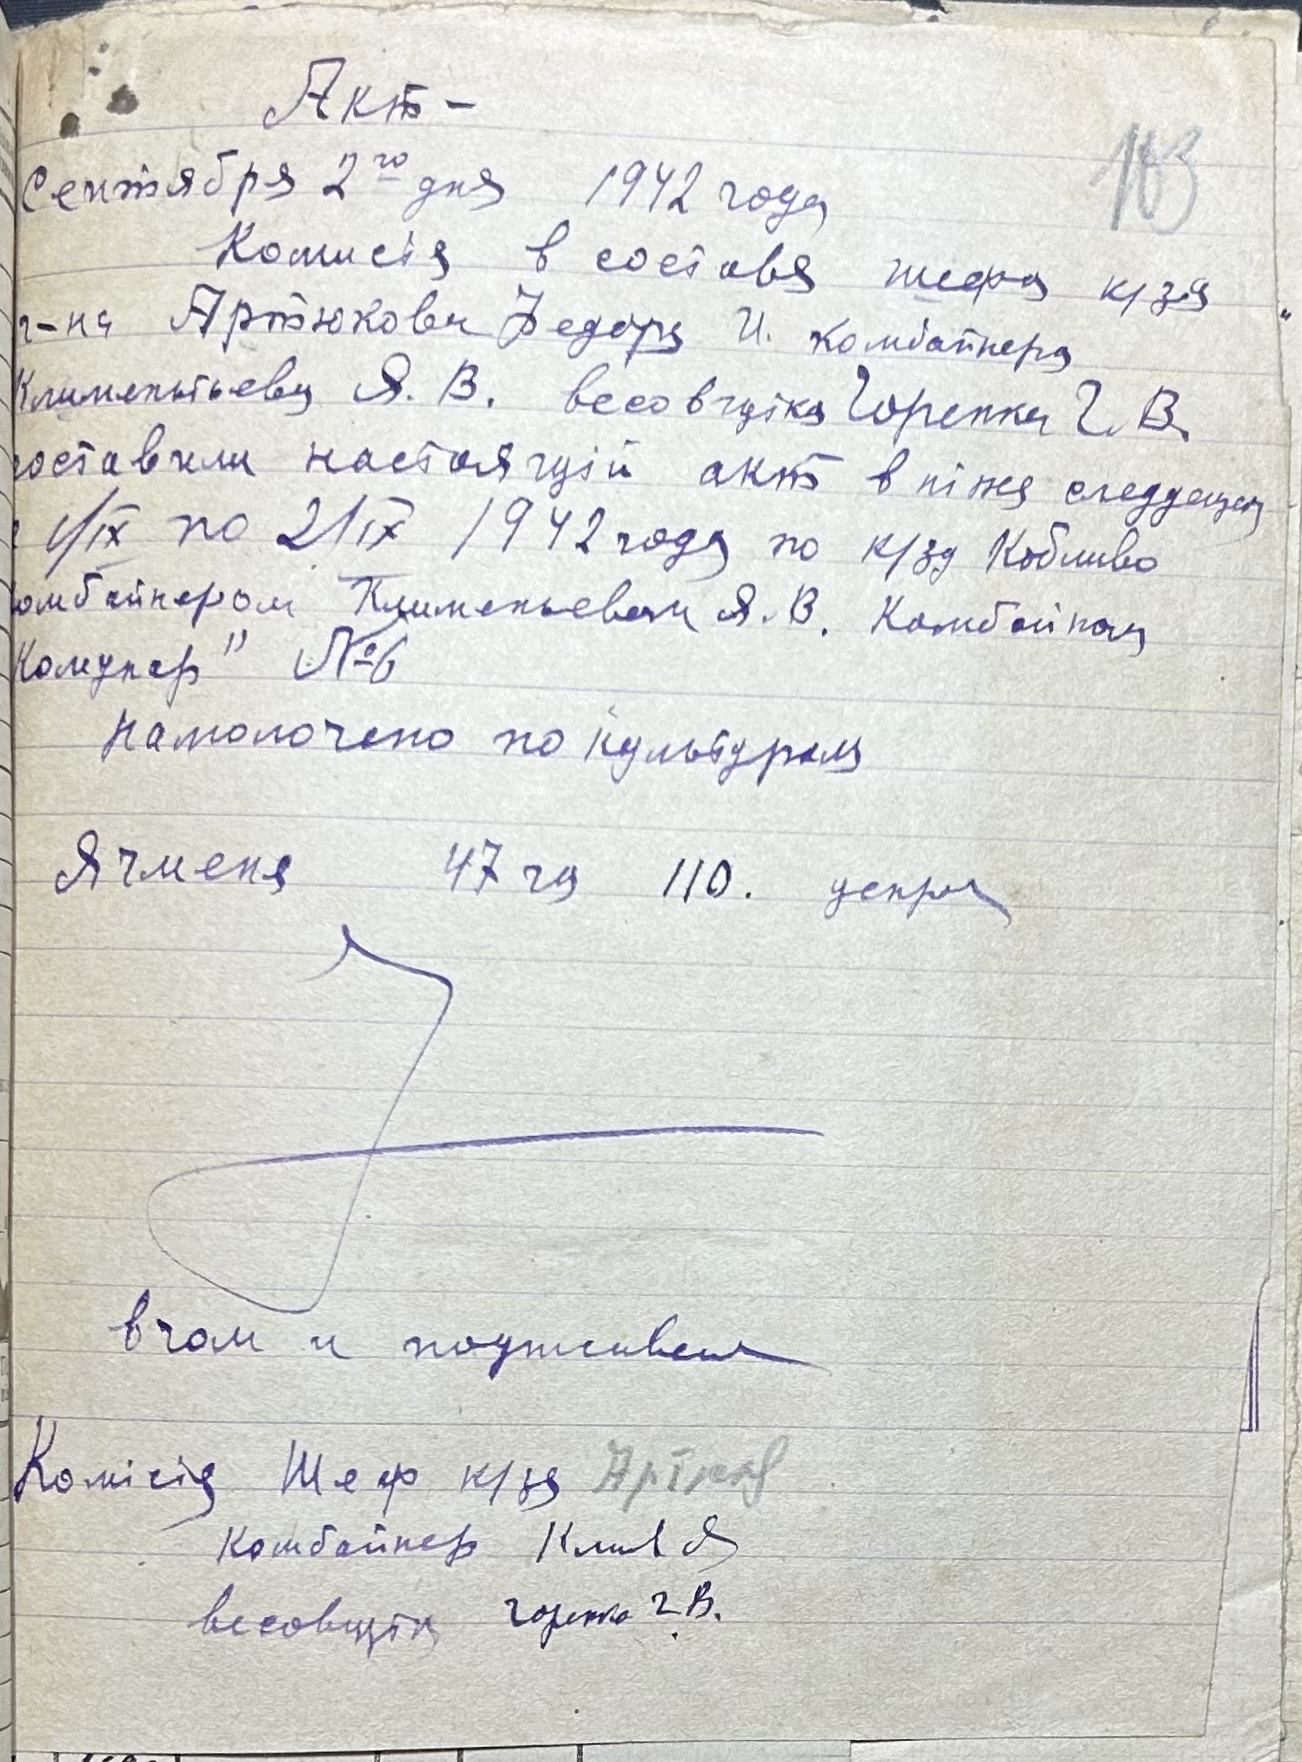 Акт -
183
Сентября 2го дня 1942 года
Комисія в составя шефа к/зя
г-на Артюкова Федора И. комбайнера
Климентьева Я. В. весовщіка Горенка Г. В.
составили настоящій акт в ніжя следущем
с 1/IX по 2/IX 1942 года по к/зу Коблево
комбайнером Клименьевам Я. В. Камбайном
Комунар" №6
намолочено по культурам
Ячменя 47 га 110.
в чом и
Комісія Шеф к/зя
Комбайнер Клив Я
весовщік Горенко Г. В.